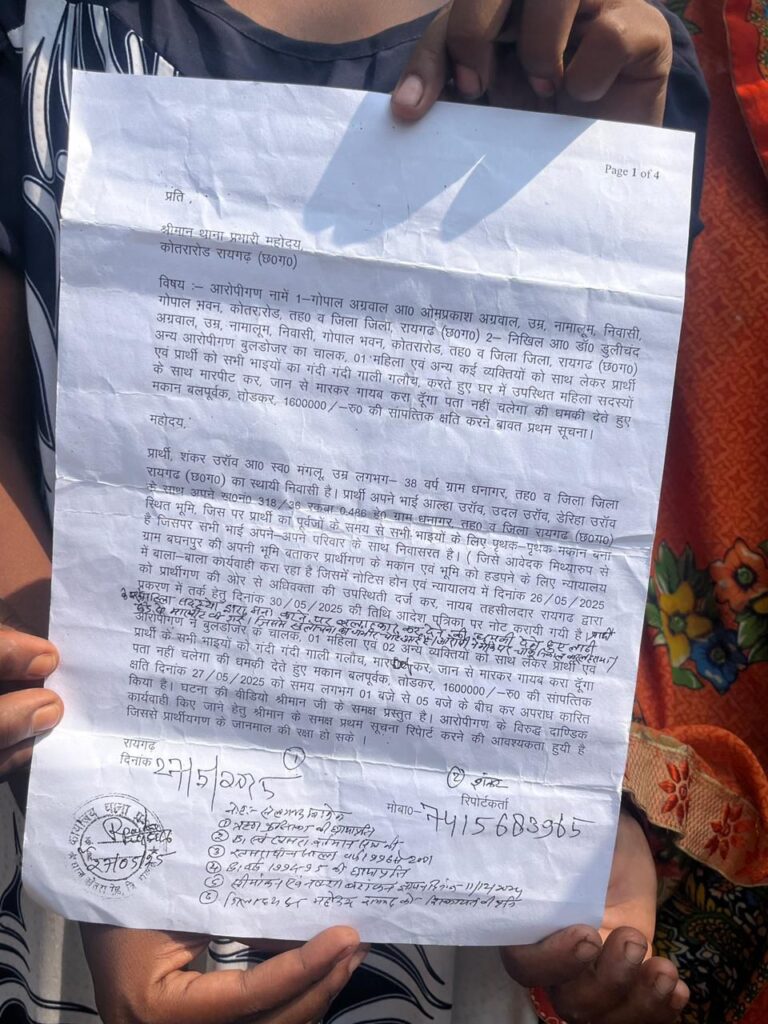 Page 1 of 4
प्रति ,
श्रीमान थाना प्रभारी महोदय,
कोतरारोड रायगढ़ (छ0ग0)
विषय :– आरोपीगण नामें 1–गोपाल अग्रवाल आ0 ओमप्रकाश अग्रवाल, उम्र, नामालूम, निवासी,
गोपाल भवन, कोतरारोड, तह0 व जिला जिला, रायगढ़ (छ0ग0) 2– निखिल आ0 डॉ0 डुलीचंद
अग्रवाल, उम्र, नामालूम, निवासी, गोपाल भवन, कोतरारोड, तह0 व जिला जिला, रायगढ़ (छ0ग0)
अन्य आरोपीगण बुलडोजर का चालक, 01 महिला एवं अन्य कई व्यक्तियों को साथ लेकर प्रार्थी
एवं प्रार्थी को सभी भाइयों का गंदी गंदी गाली गलौच, करते हुए घर में उपस्थित महिला सदस्यों
के साथ मारपीट कर, जान से मारकर गायब करा दूँगा पता नहीं चलेगा की धमकी देते हुए
मकान बलपूर्वक, तोडकर, 1600000/–रु0 की सांपत्तिक क्षति करने बावत प्रथम सूचना।
महोदय,
प्रार्थी, शंकर उरॉव आ0 स्व0 मंगलू, उम्र लगभग– 38 वर्ष ग्राम धनागर, तह0 व जिला जिला
रायगढ़ (छ0ग0) का स्थायी निवासी है। प्रार्थी अपने भाई आल्हा उरॉव, उदल उरॉव, डेरिहा उरॉव
के साथ अपने ख0नं0 318/36 रकबा 0.486 हे0 ग्राम धनागर, तह0 व जिला रायगढ़ (छ0ग0)
स्थित भूमि, जिस पर प्रार्थी का पूर्वजों के समय से सभी भाइयों के लिए पृथक–पृथक मकान बना
है जिसपर सभी भाई अपने–अपने परिवार के साथ निवासरत है। ( जिसे आवेदक मिथ्यारुप से
ग्राम बघनपुर की अपनी भूमि बताकर प्रार्थीगण के मकान एवं भूमि को हडपने के लिए न्यायालय
में बाला–बाला कार्यवाही करा रहा है जिसमें नोटिस होन एवं न्यायालय में दिनांक 26/05/2025
को प्रार्थीगण की ओर से अधिवक्ता की उपस्थिती दर्ज कर, नायब तहसीलदार रायगढ़ द्वारा
प्रकरण में तर्क हेतु दिनांक 30/05/2025 की तिथि आदेश पुत्रिका पर नोट करायी गयी है। प्रार्थी
आरोपीगण ने बुलडोजर के चालक, 01 महिला एवं 02 अन्य व्यक्तियों को साथ लेकर प्रार्थी एवं
प्रार्थी के सभी भाइयों को गंदी गंदी गाली गलौच, मारपीट कर, जान से मारकर गायब करा दूँगा
पता नहीं चलेगा की धमकी देते हुए मकान बलपूर्वक, तोडकर, 1600000/–रु0 की सांपत्तिक
क्षति दिनांक 27/05/2025 को समय लगभग 01 बजे से 05 बजे के बीच कर अपराध कारित
किया है। घटना की वीडियो श्रीमान जी के समक्ष प्रस्तुत है। आरोपीगण के विरुद्ध दाण्डिक
कार्यवाही किए जाने हेतु श्रीमान के समक्ष प्रथम सूचना रिपोर्ट करने की आवश्यकता हुयी है
जिससे प्रार्थीयगण के जानमाल की रक्षा हो सके ।
रायगढ़
दिनांक 27/5/2025
① ② शंकर
रिपोर्टकर्ता
मोबा0- 7415683965
27/05/25
①
②
③ 1996 2001
④ 1994-95 की छायाप्रति
⑤ 11/12/2024
⑥